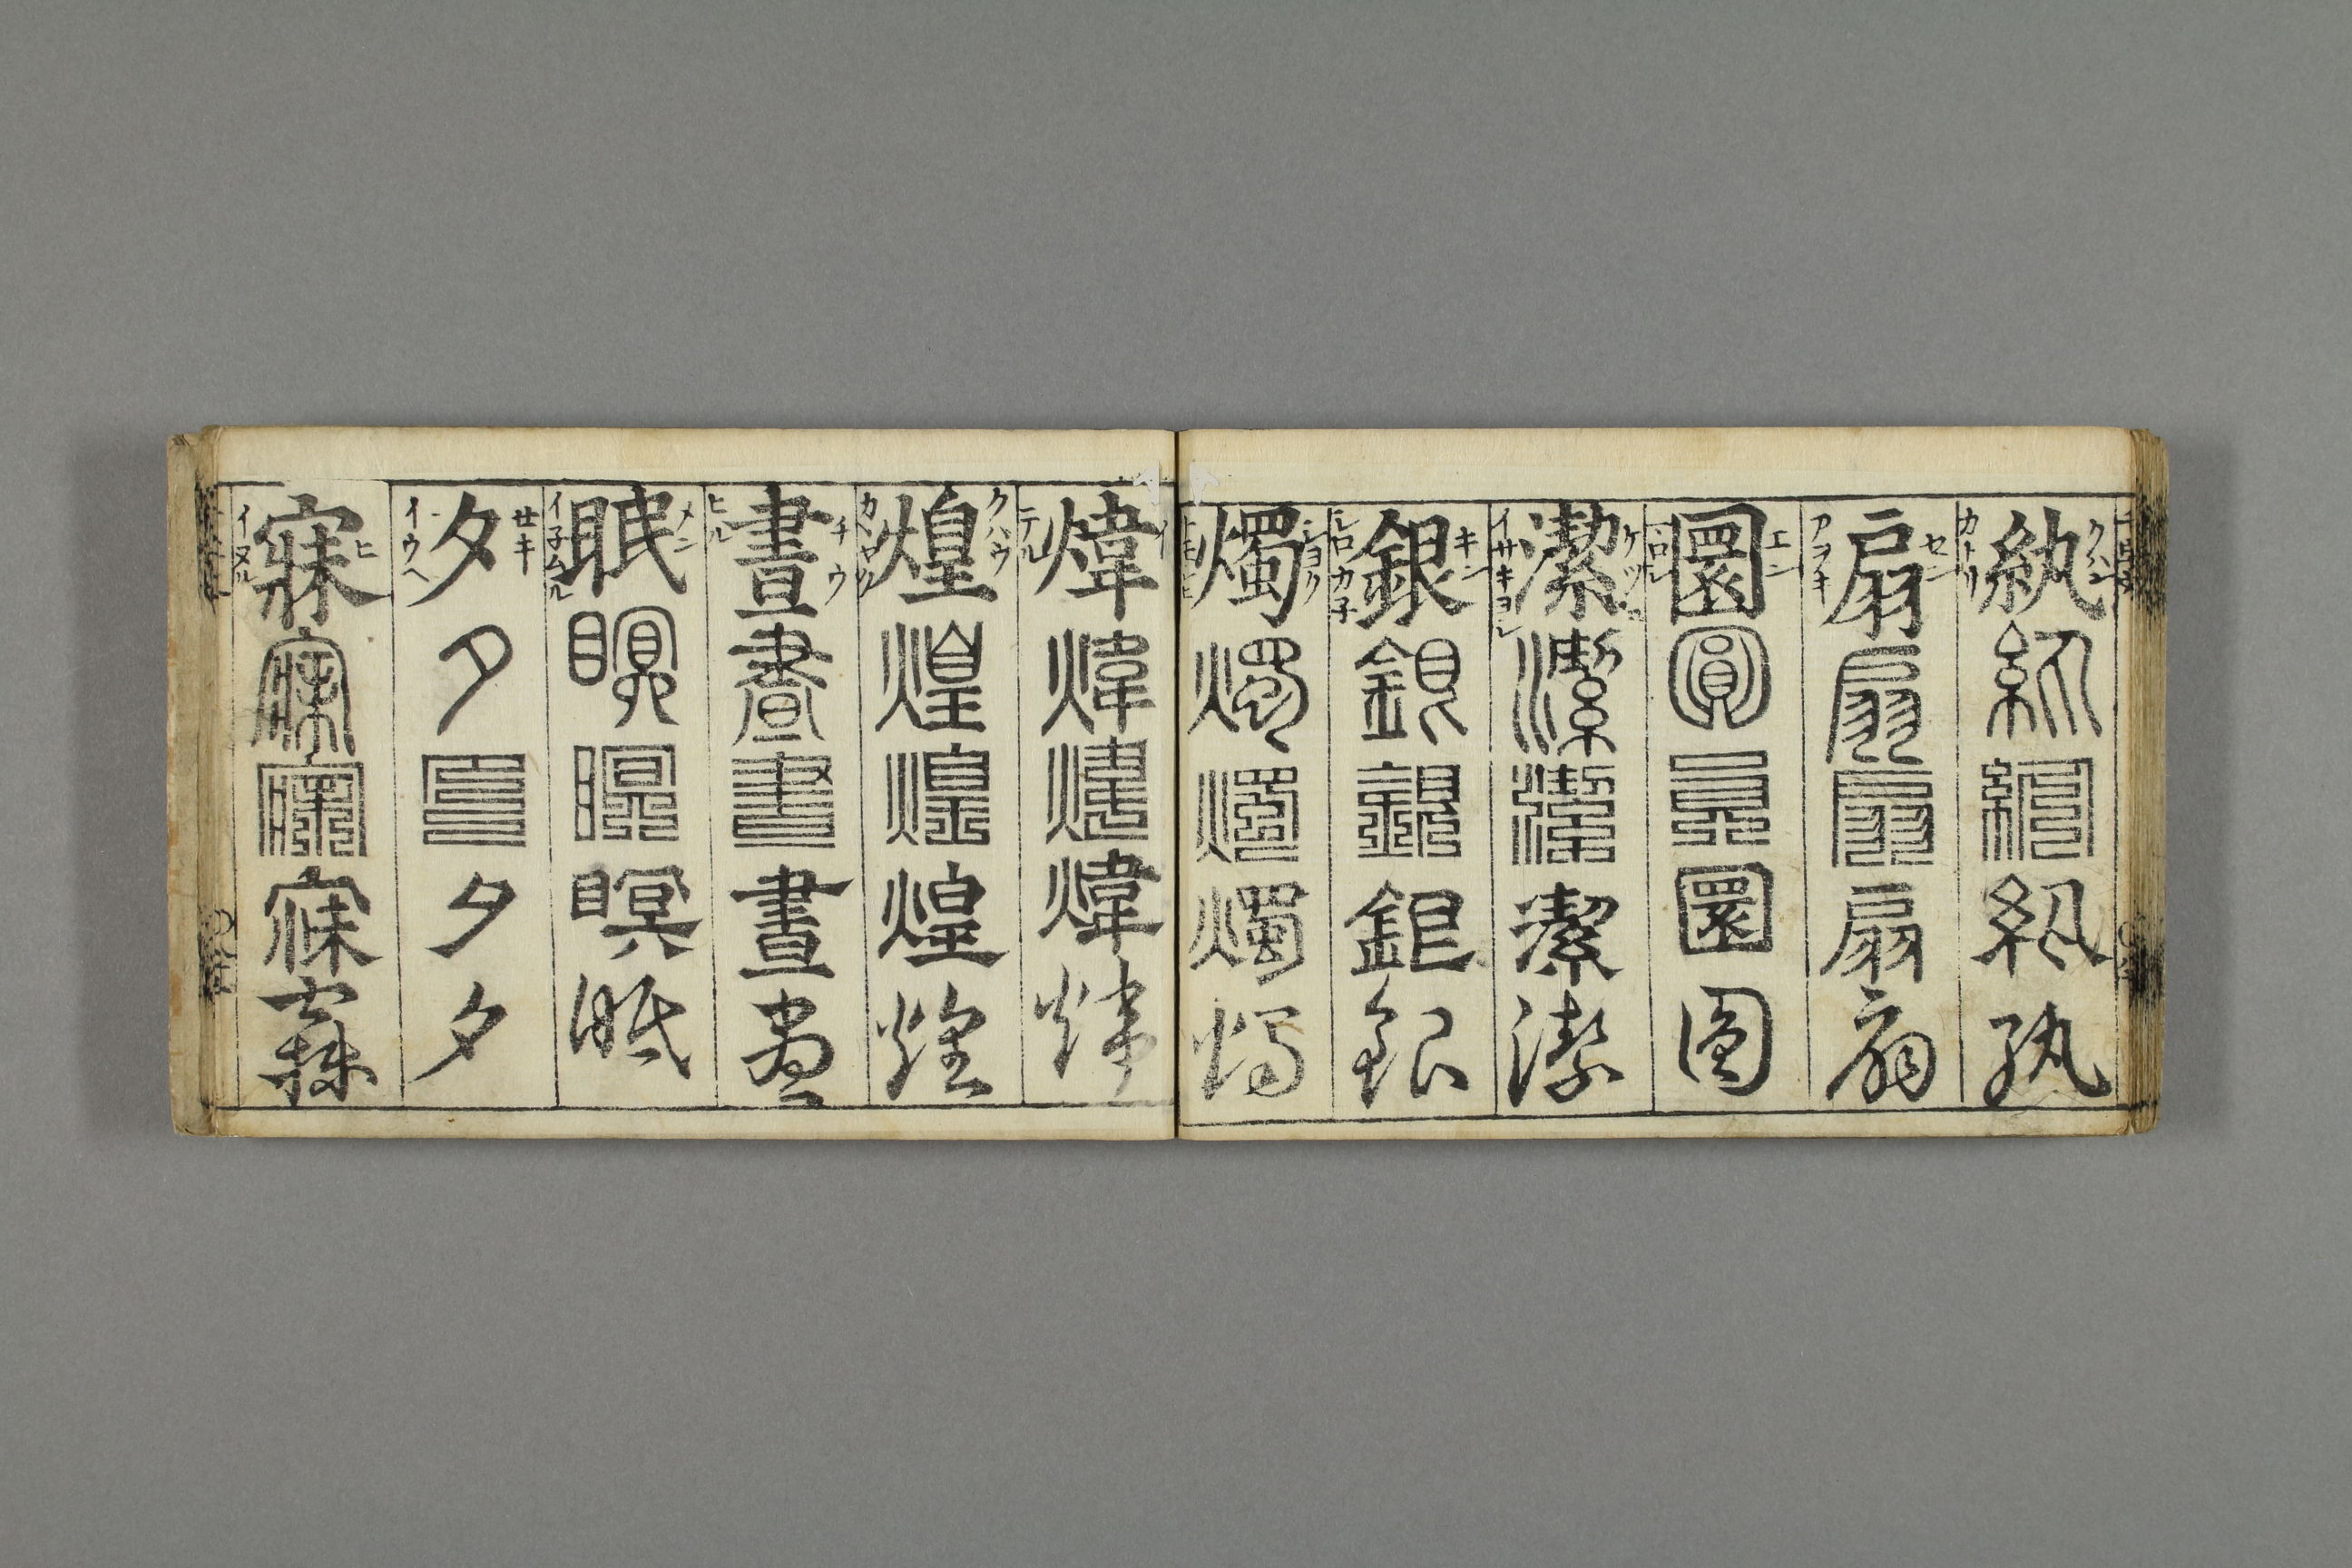 クハン 紈 紈 紈 紈 紈 カトリ
セン 扇 扇 扇 扇 扇 アフキ
エン 圜 圓 圓 圜 圓
ケツ 潔 潔 潔 潔 潔 イサキヨシ
キン 銀 銀 銀 銀 銀 シロカ子
シヨク 燭 燭 燭 燭 燭
煒 煒 煒 煒 煒 テル
クハウ 煌 煌 煌 煌 煌 カヽヤク
チウ 晝 晝 晝 晝 晝 ヒル
メン 眠 瞑 瞑 瞑 眠 イ子ムル
セキ 夕 夕 夕 夕 夕 イウヘ
ヒ 寐 寐 寐 寐 寐 イヌル